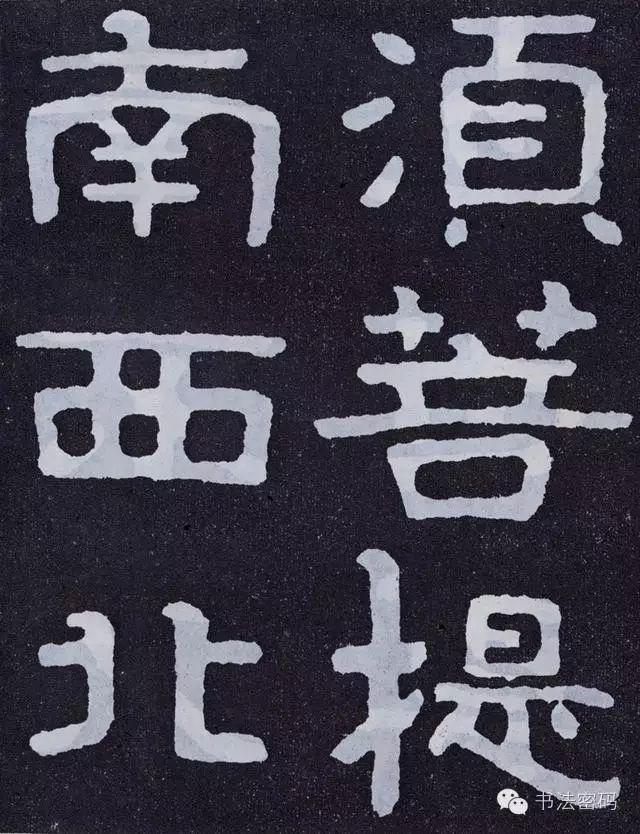 湏菩提
南西北
书法密码